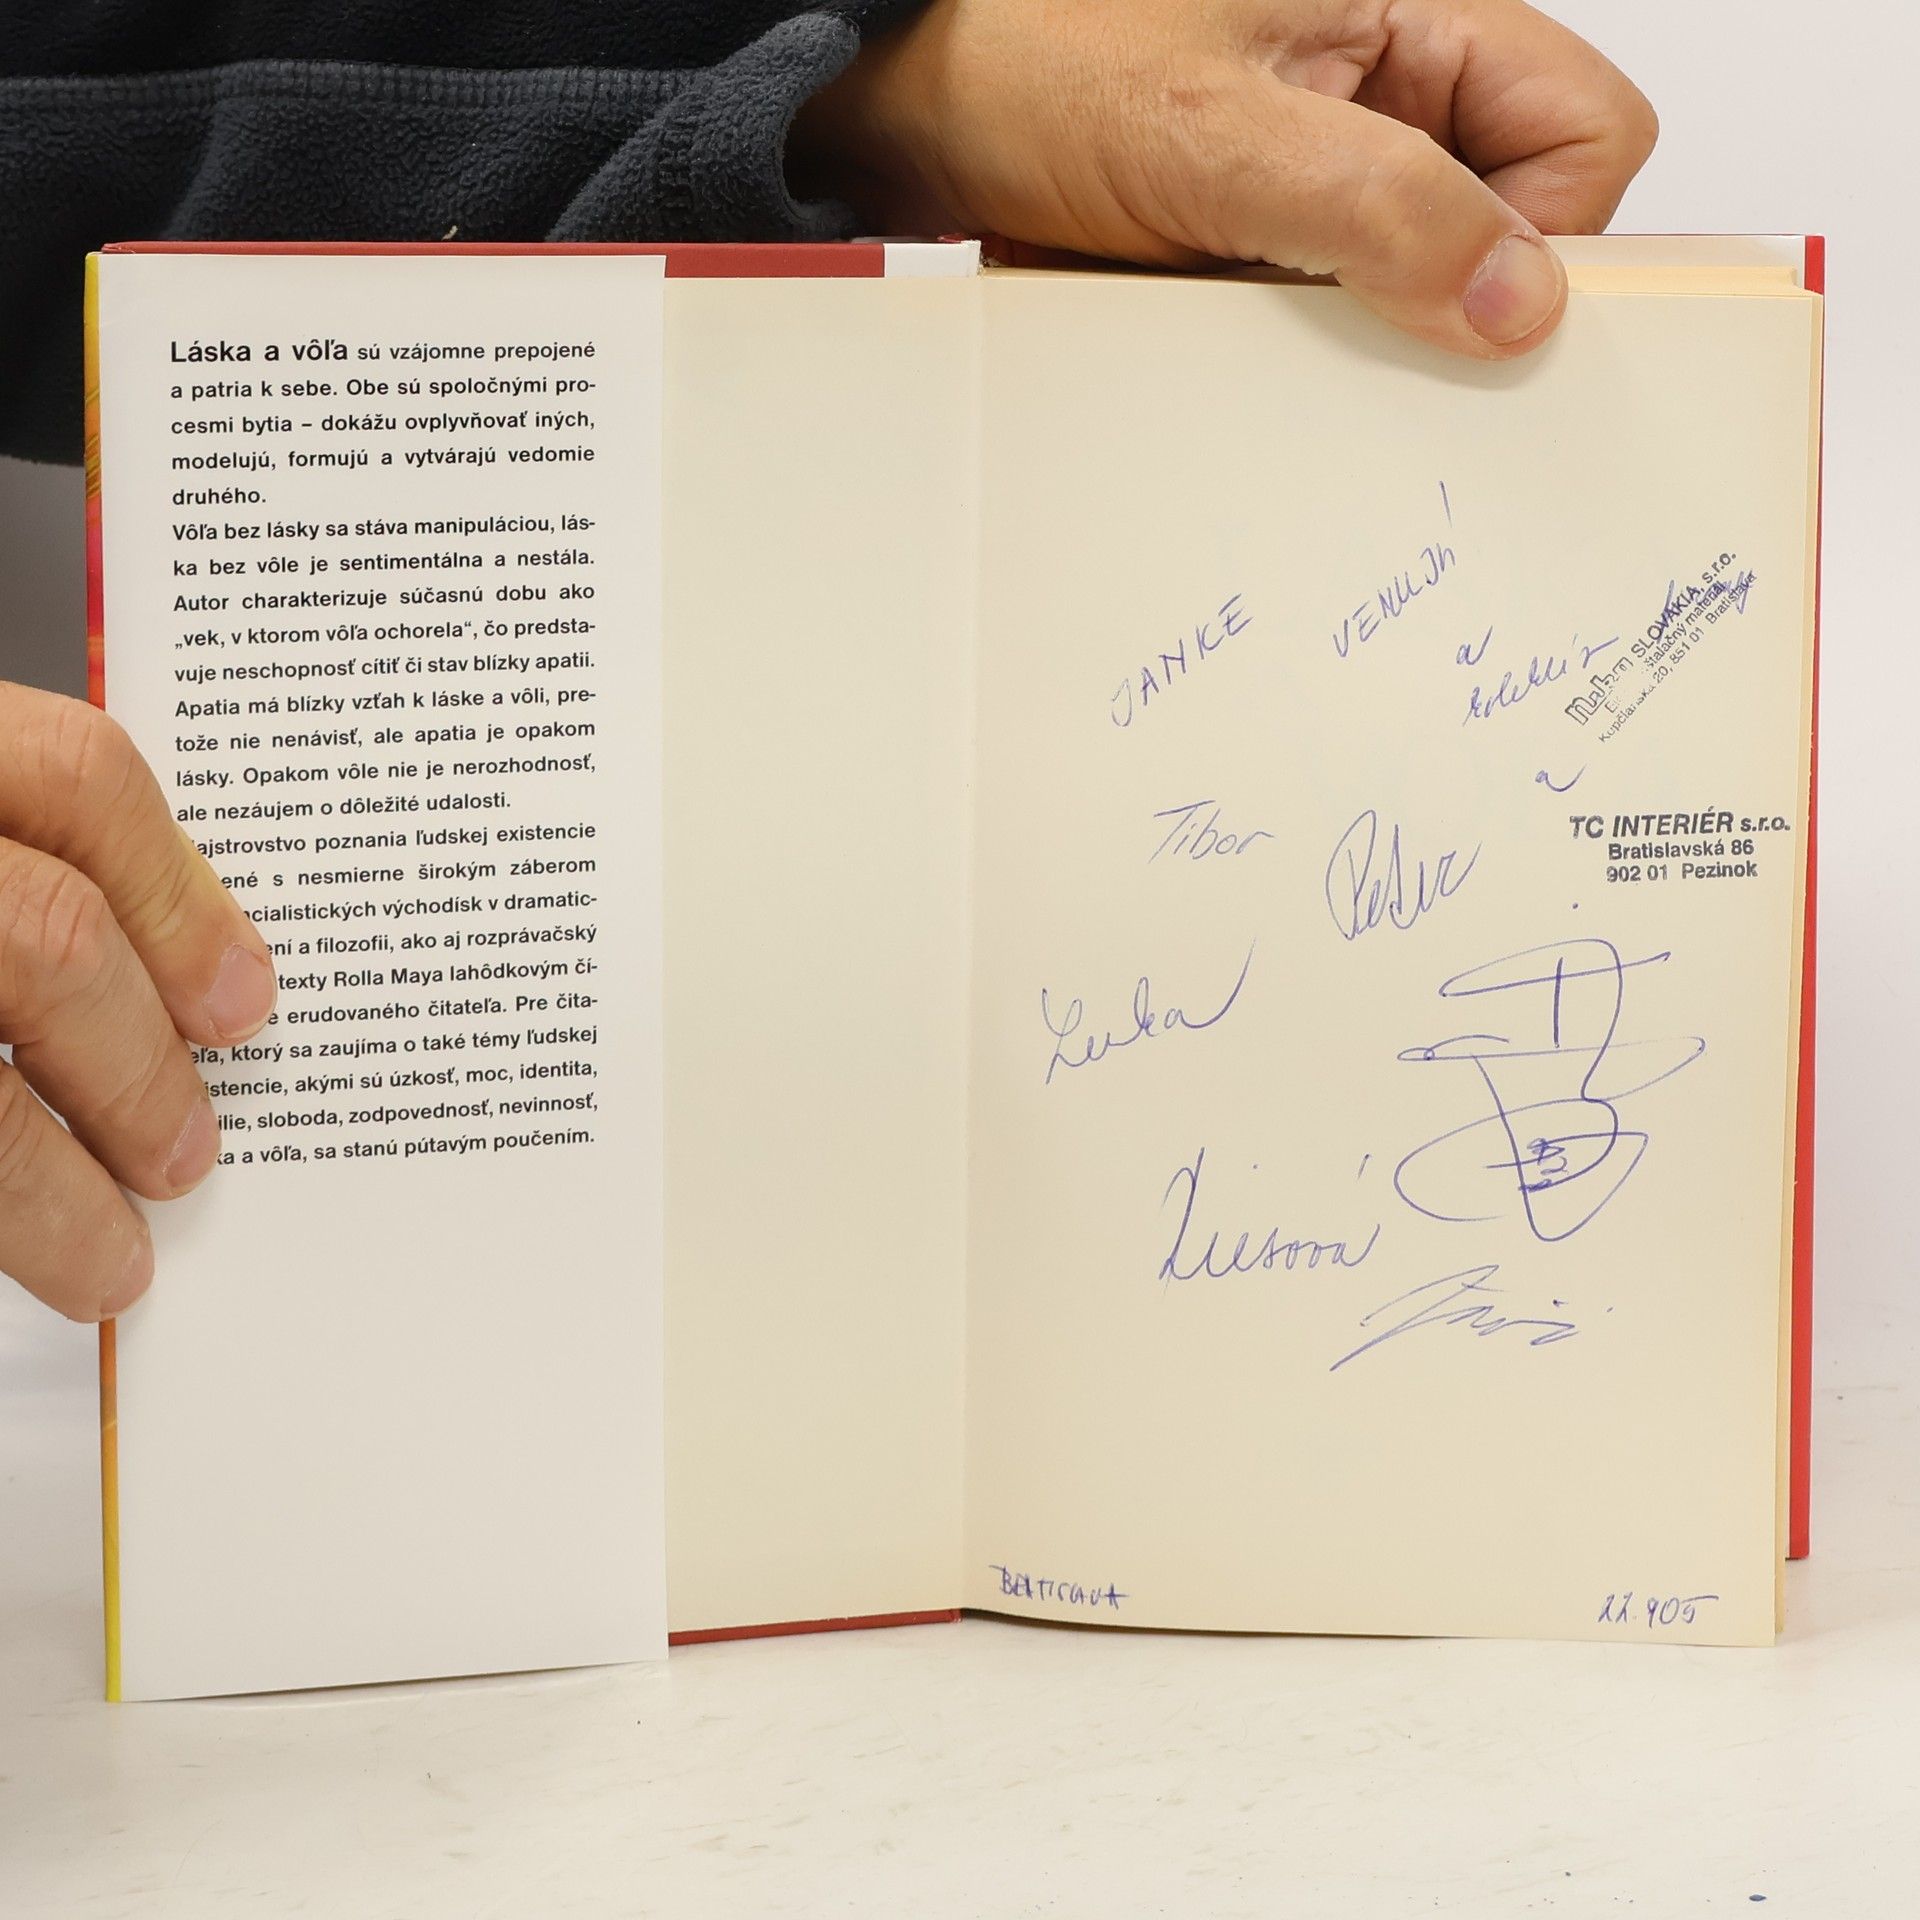 Láska a vôľa sú vzájomne prepojené
a patria k sebe. Obe sú spoločnými pro-
cesmi bytia – dokážu ovplyvňovať iných,
modelujú, formujú a vytvárajú vedomie
druhého.
Vôľa bez lásky sa stáva manipuláciou, lás-
ka bez vôle je sentimentálna a nestála.
Autor charakterizuje súčasnú dobu ako
„vek, v ktorom vôľa ochorela“, čo predsta-
vuje neschopnosť cítiť či stav blízky apatii.
Apatia má blízky vzťah k láske a vôli, pre-
tože nie nenávisť, ale apatia je opakom
lásky. Opakom vôle nie je nerozhodnosť,
ale nezáujem o dôležité udalosti.
ajstrovstvo poznania ľudskej existencie
ené s nesmierne širokým záberom
ncialistických východísk v dramatic-
ní a filozofii, ako aj rozprávačský
texty Rolla Maya lahôdkovým čí-
e erudovaného čitateľa. Pre čita-
eľa, ktorý sa zaujíma o také témy ľudskej
istencie, akými sú úzkosť, moc, identita,
ilie, sloboda, zodpovednosť, nevinnosť,
ka a vôľa, sa stanú pútavým poučením.
JANKE VENUJÚ
a
SLOVAKIA, s.r.o.
materiál
20, 851 01 Bratislava
a
TC INTERIÉR s.r.o.
Bratislavská 86
902 01 Pezinok
Tibor
Peter
BRATISLAVA
22.905